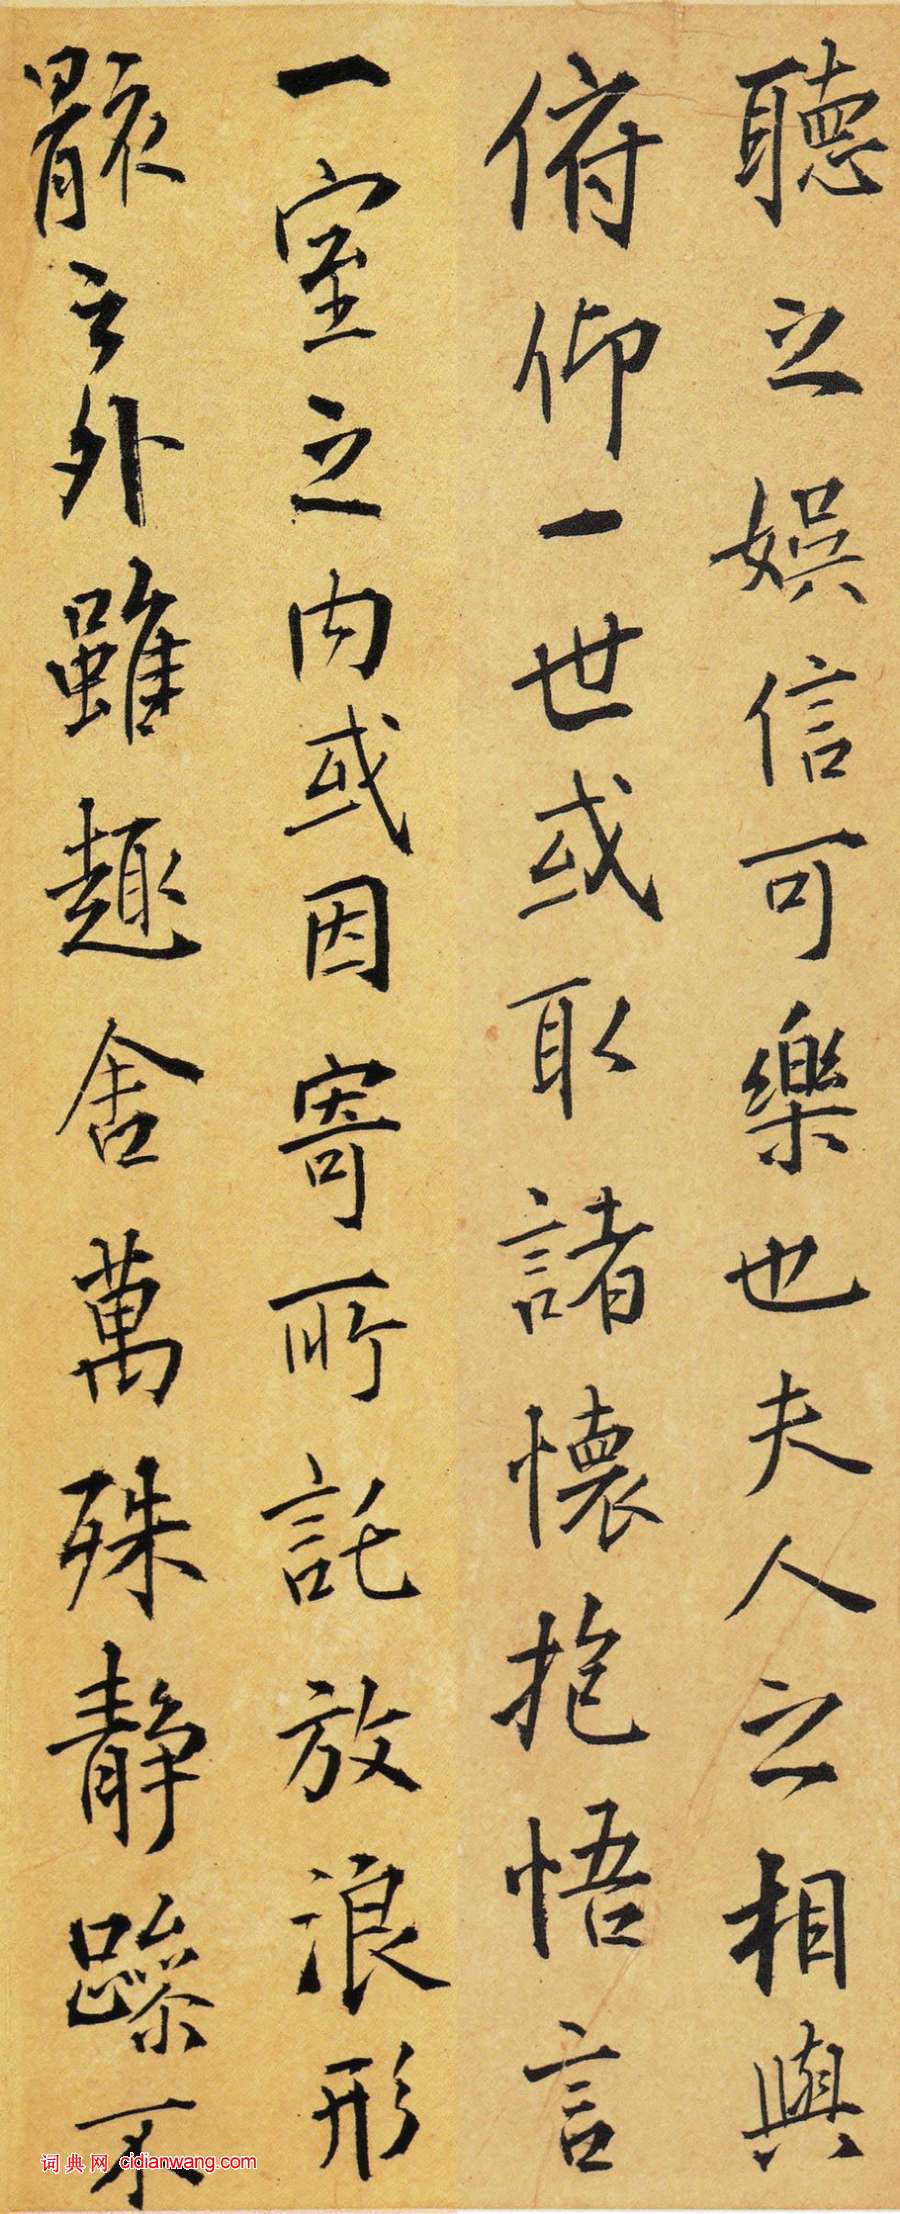 聽之娛信可樂也夫人之相與
俯仰一世或取諸懷抱悟言
一室之內或因寄所託放浪形
骸之外雖趣舍萬殊静躁不
词典网 cidianwang.com